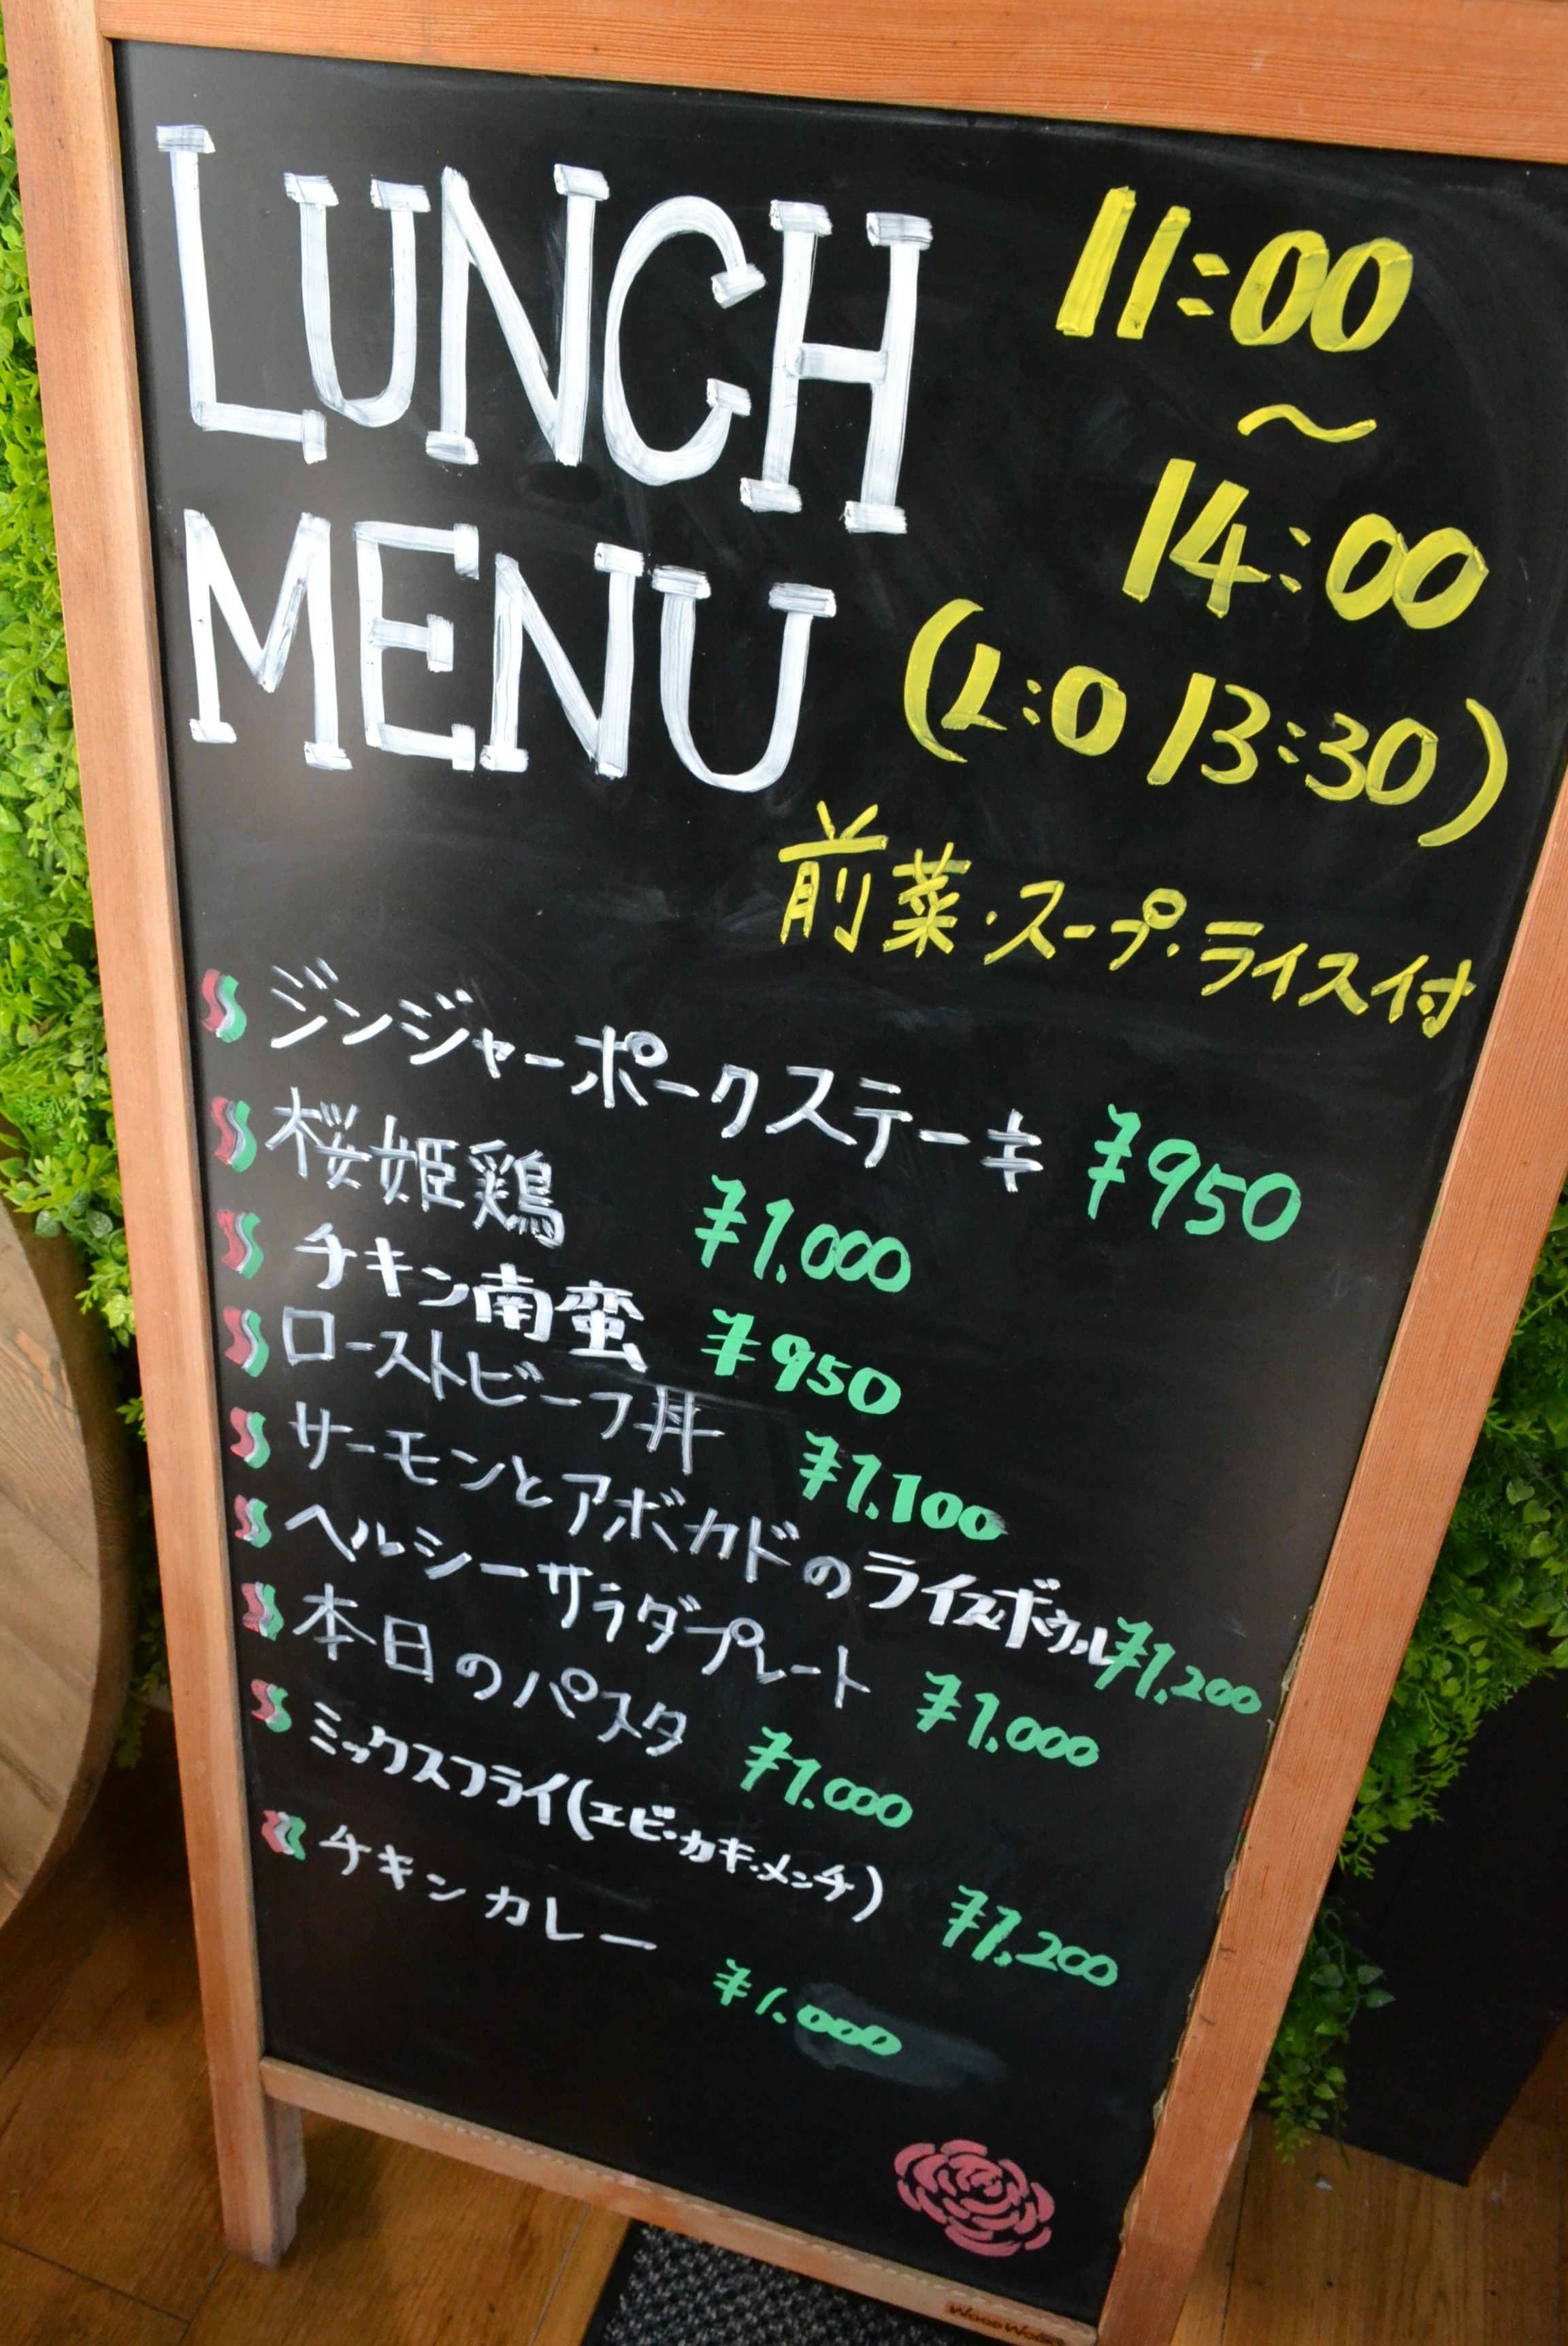 LUNCH
MENU
11:00
～
14:00
(L:O 13:30)
前菜・スープ・ライス付
ジンジャーポークステーキ ¥950
桜姫鶏 ¥1.000
チキン南蛮 ¥950
ローストビーフ丼 ¥1.100
サーモンとアボカドのライスボウル ¥1.200
ヘルシーサラダプレート ¥1.000
本日のパスタ ¥1.000
ミックスフライ(エビ・カキ・メンチ) ¥1.200
チキンカレー ¥1.000